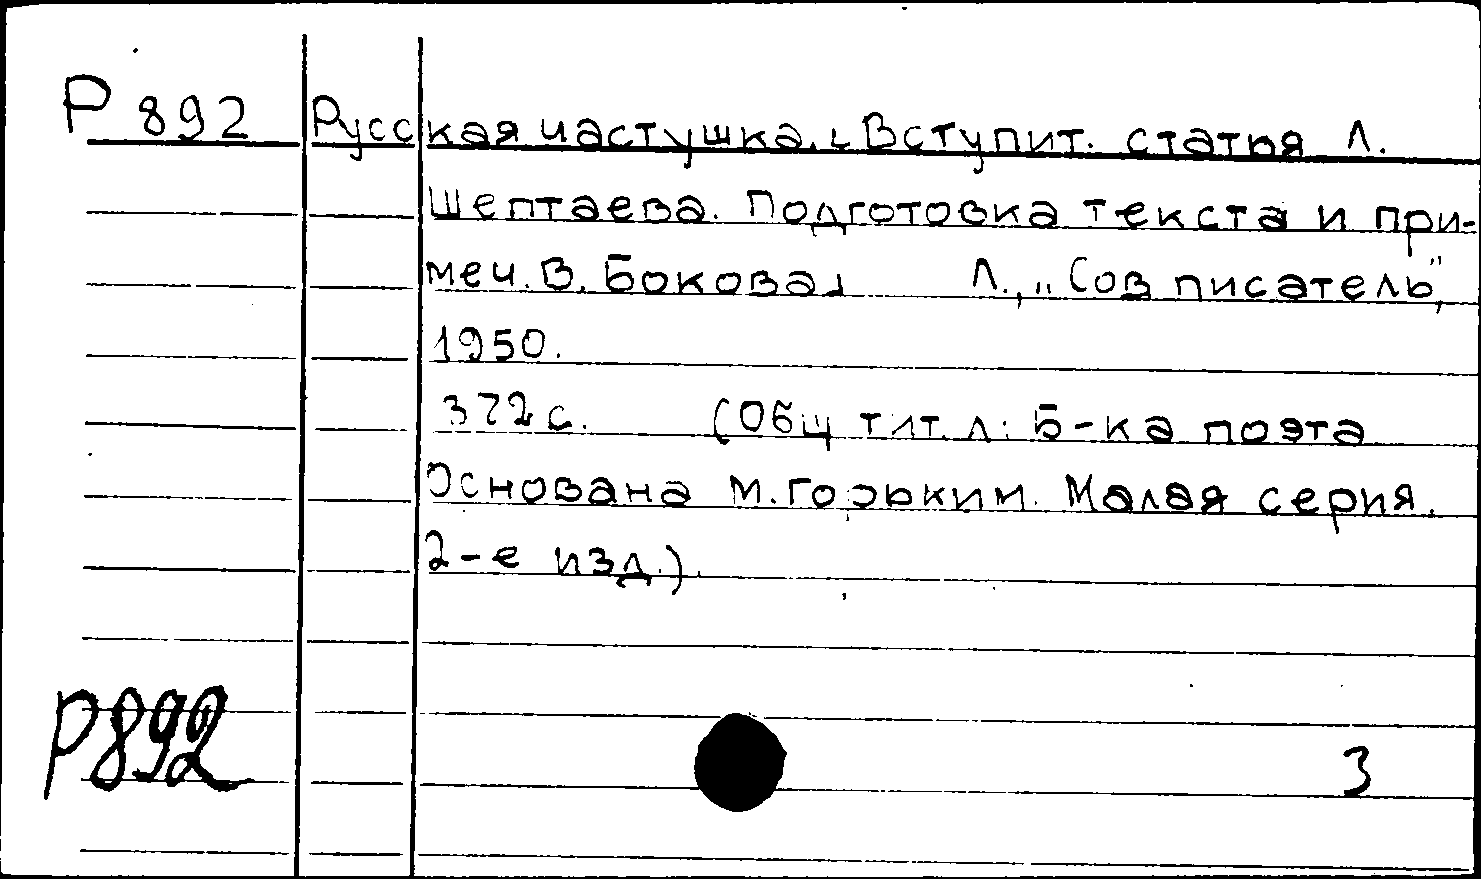 Р 892 Русская частушка. [Вступит. статья Л.
Шептаева. Подготовка текста и при-
меч. В. Бокова] Л., „Сов писатель",
1950.
372 с. (Общ тит. л: Б-ка поэта
Основана М. Горьким. Малая серия.
2-е изд.).
Р892
3